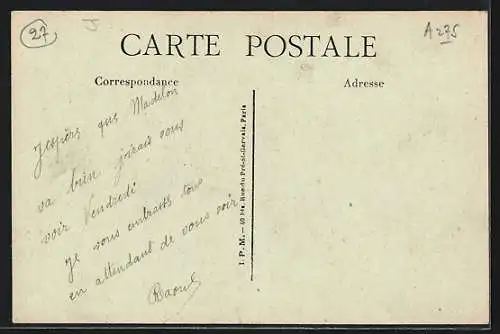 27
A 275
CARTE POSTALE
Correspondance
Adresse
J'espère que Madelon
va bien j'irais vous
voir Vendredi
je vous embrasse tous
en attendant de vous voir
Raoul
I. P. M. — 40 bis, Rue du Pré-St-Gervais, Paris